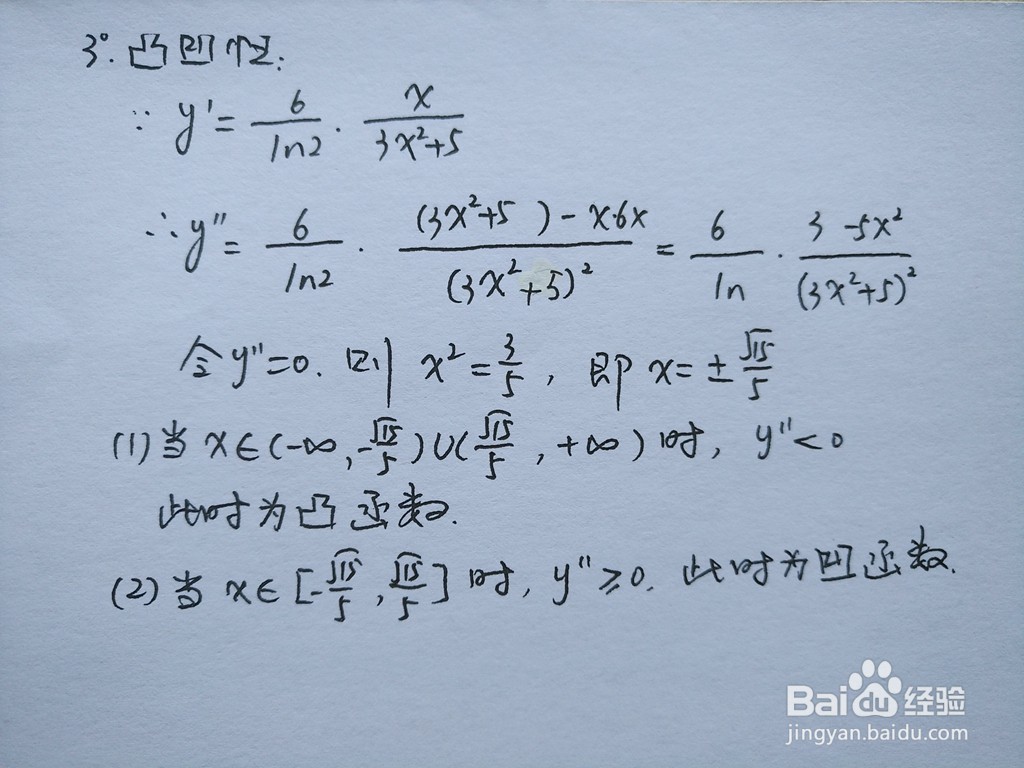 3°. 凸凹性:
∵ y' = 6/ln2 · x/(3x²+5)
∴ y" = 6/ln2 · ((3x²+5) - x·6x)/(3x²+5)² = 6/ln · (3 -5x²)/(3x²+5)²
令 y"=0. 则 x² = 3/5 , 即 x = ± √15/5
(1) 当 x∈(-∞, -√15/5)∪(√15/5, +∞) 时, y"<0
此时为凸函数.
(2) 当 x∈[-√15/5, √15/5] 时, y"≥0. 此时为凹函数.
Baidu经验
jingyan.baidu.com